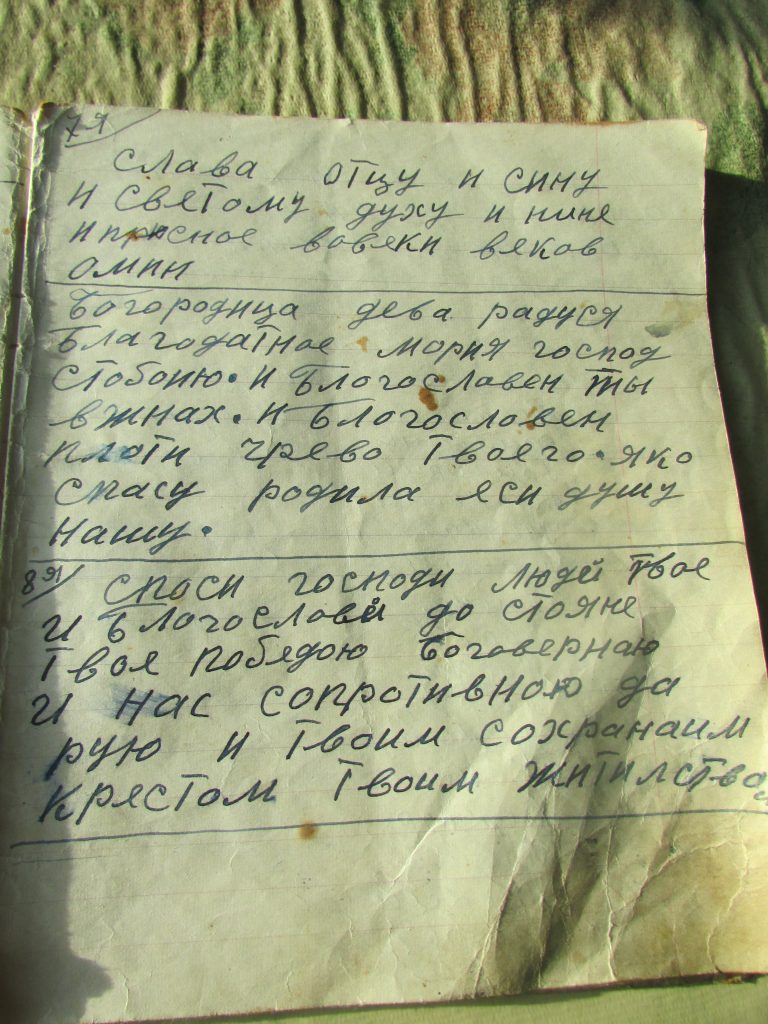 7я
слава отцу и сину
и светому духу и нине
и присное вовеки веков
омин
Богородица дева радуся
Благодатное мория господ
стобоию. и Благославен ты
вжнах. и Благословен
плоти чрево твоего. яко
спасу родила яси душу
нашу.
8я споси господи людей твое
и Благослови до стояне
твоя победою боговернаю
и нас сопротивною да
рую и твоим сохранаим
крястом твоим житилства